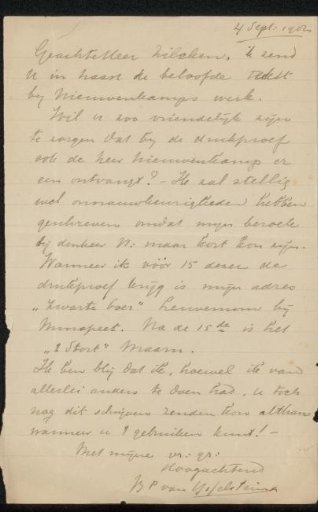 4 Sept. 1902
Geachte Heer Zilcken, ik zend
u in haast de beloofde tekst
bij Nieuwenkamps werk.
Wil u zoo vriendelijk zijn
te zorgen dat bij de drukproef
ook de heer Nieuwenkamp er
een ontvangt? - Ik zal stellig
wel onnauwkeurigheden hebben
geschreven omdat mijn bezoek
bij den heer N. maar kort kon zijn.
Wanneer ik vóór 15 dezer de
drukproef krijg is mijn adres
"Zwarte boer" Leuvenum bij
Nunspeet. Na de 15de is het
"'t Stort" Maarn.
Ik ben blij dat ik, hoewel ik veel
allerlei anders te doen had, u toch
nog dit schrijven zenden kon althans
wanneer u 't gebruiken kunt! -
Met mijne vr: gr:
Hoogachtend
van IJsselstein